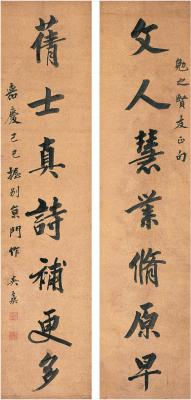 勉之賢友正句
文人慧業脩原早
蒨士真詩補更多
嘉慶己巳握別京門作